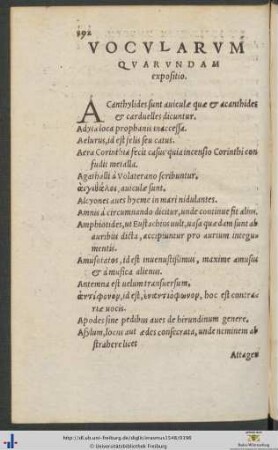 392
VOCVLARVM
QVARVNDAM
expositio.
ACanthylides sunt auiculæ quæ & acanthides
& carduelles dicuntur.
Adyta loca prophanis inaccessa.
Aelurus, id est felis seu catus.
Aera Corinthia fecit casus quia incensio Corinthi con
fudit metalla.
Agathalli à Volaterano scribuntur,
αἰγιθαλοι, auiculæ sunt.
Alcyones aues hyeme in mari nidulantes.
Amnis à circumnando dicitur, unde continue fit alius.
Amphiotides, ut Eustachius uult, uasa quædam sunt ab
auribus dicta, accipiuntur pro aurium integu-
mentis.
Amusotatos, id est inuenustissimus, maxime amusus
& à musica alienus.
Antemna est uelum transuersum,
ἀντίφονον, id est, ἐναντιόφωνον, hoc est contra-
riæ uocis.
Apodes sine pedibus aues de hirundinum genere.
Asylum, locus aut ædes consecrata, unde neminem ab
strahere licet
Attagen
http://dl.ub.uni-freiburg.de/diglit/erasmus1548/0398
© Universitätsbibliothek Freiburg
Baden-Württemberg